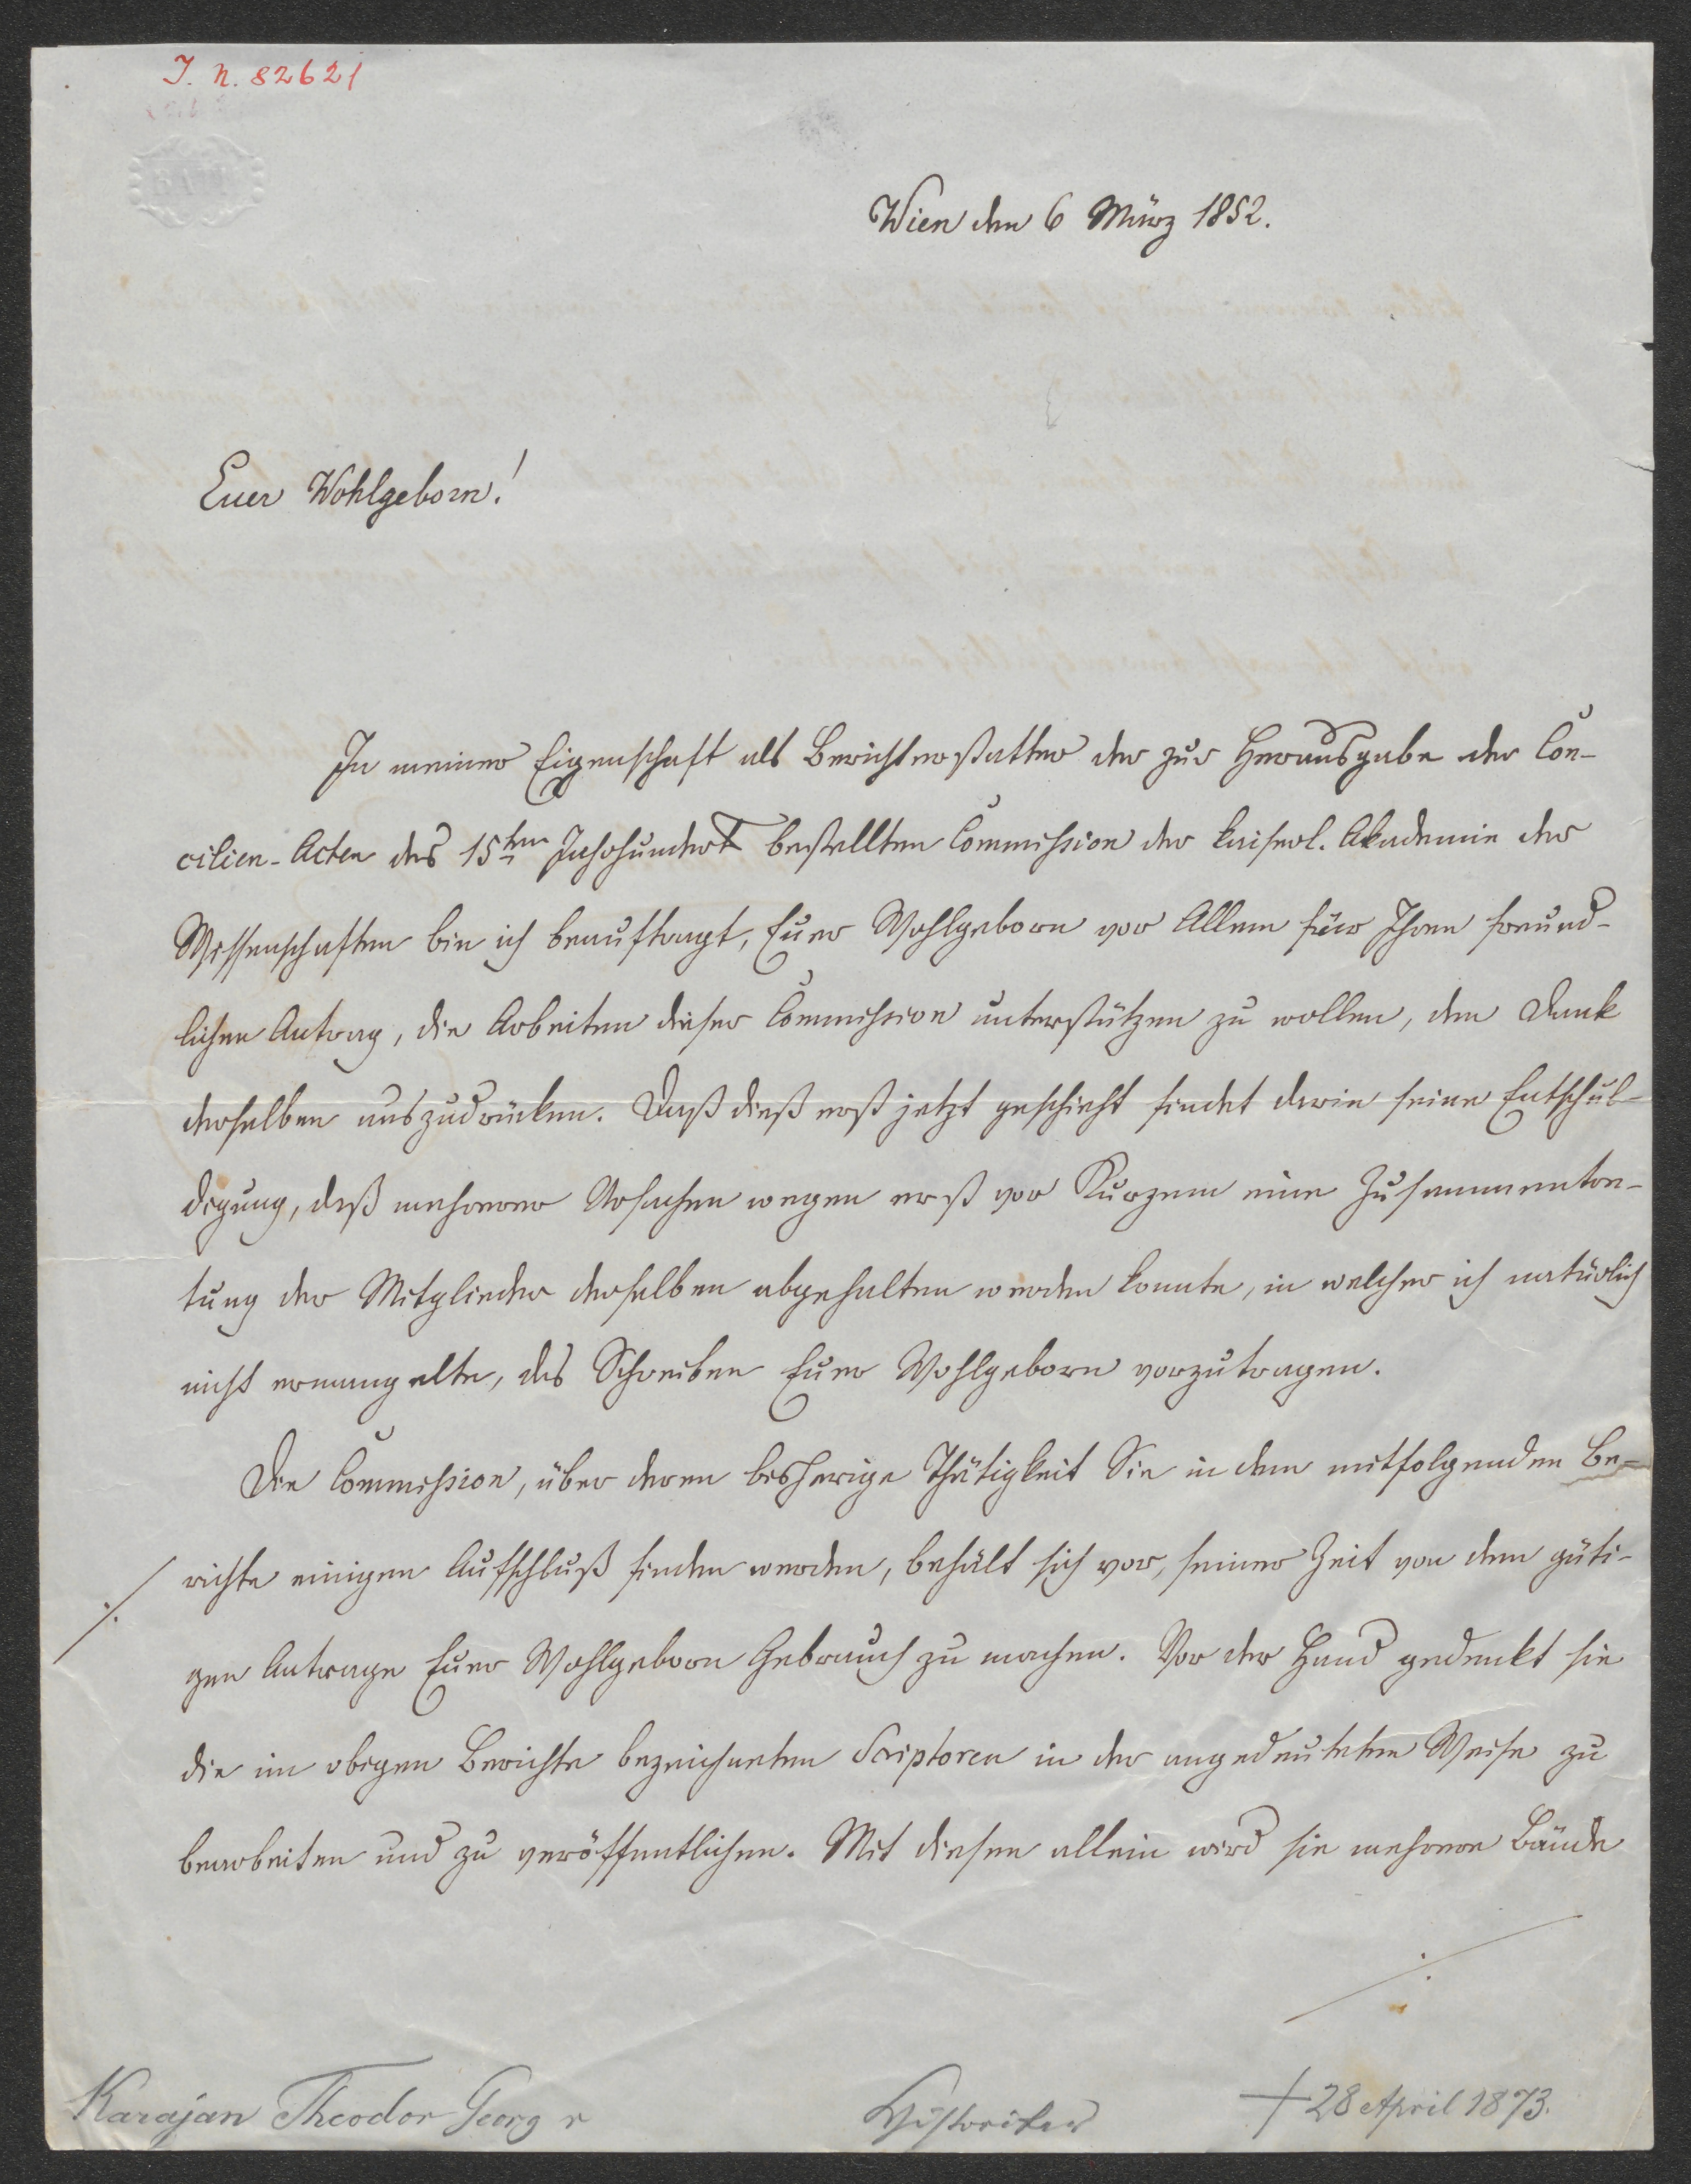 I. N. 82621
BATH
Wien den 6 März 1852.
Euer Wohlgeborn!
In meiner Eigenschaft als Berichterstatter der zur Herausgabe der Con-
cilien-Acten des 15ten Jahrhundert bestellten Commission der kaiserl. Akademie der
Wissenschaften bin ich beauftragt, Euer Wohlgeborn vor Allem für Ihren freund-
lichen Antrag, die Arbeiten dieser Commission unterstützen zu wollen, den Dank
derselben auszudrücken. Daß dieß erst jetzt geschieht findet darin seine Entschul-
digung, daß mehrerer Ursachen wegen erst vor Kurzem eine Zusammentre-
tung der Mitglieder derselben abgehalten werden konnte, in welcher ich natürlich
nicht ermangelte, das Schreiben Euer Wohlgeborn vorzutragen.
Die Commission, über deren bisherige Thätigkeit Sie in dem mitfolgenden Be-
./. richte einigen Aufschluß finden werden, behält sich vor, seiner Zeit von dem güti-
gen Antrage Euer Wohlgeborn Gebrauch zu machen. Vor der Hand gedenkt sie
die im obigen Berichte bezeichneten Scriptoren in der angedeuteten Weise zu
bearbeiten und zu veröffentlichen. Mit diesen allein wird sie mehrere Bände
./.
Karajan Theodor Georg v
Historiker
† 28 April 1873.